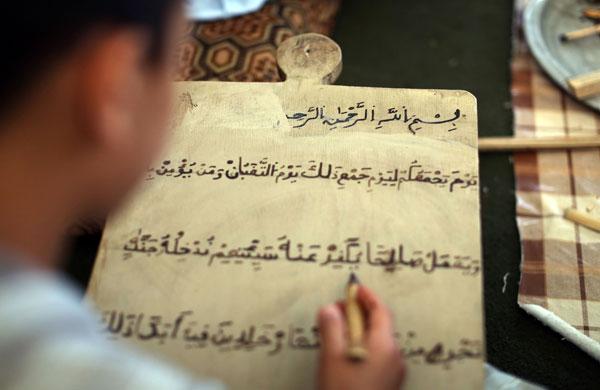 بِسْمِ اللَّهِ الرَّحْمَٰنِ الرَّحـ
يَوْمَ يَجْمَعُكُمْ لِيَوْمِ جَمْعِ ذَٰلِكَ يَوْمُ التَّغَابُنْ وَمَنْ يُؤْمِنْ
وَيَعْمَلْ صَالِحًا يُكَفِّرْ عَنْهُ نُدْخِلْهُ جَنَّٰتٍ
تَجْرِي مِنْ خَٰلِدِينَ فِيهَا أَبَدًا ذَٰلِكَ